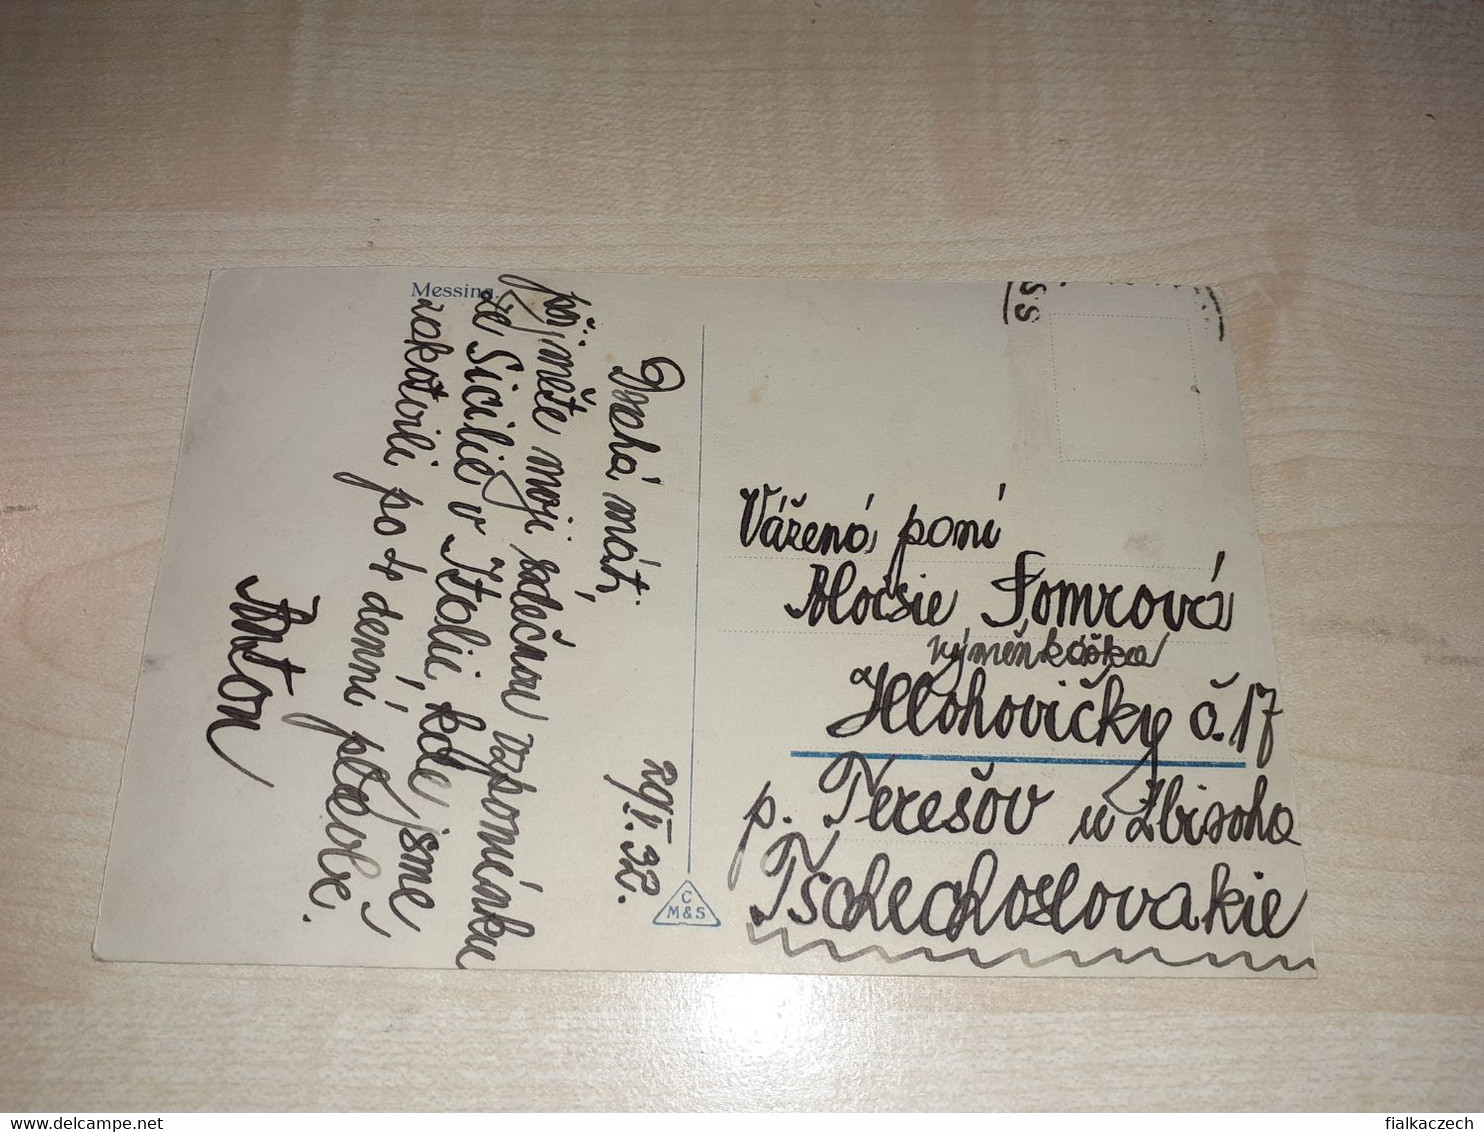 Messina.
Drahá máti,
přijměte moji srdečnou vzpomínku
ze Sicilie v Italii, kde jsme
zakotvili po 4 denní plavbě.
Anton
20/V.32.
C
M&S
SS
Vážená paní
Aloisie Fomrová
výměnkářka
Hlohovičky č. 17
p. Terešov u Zbiroha
Tschechoslovakie
www.delcampe.net
fialkaczech